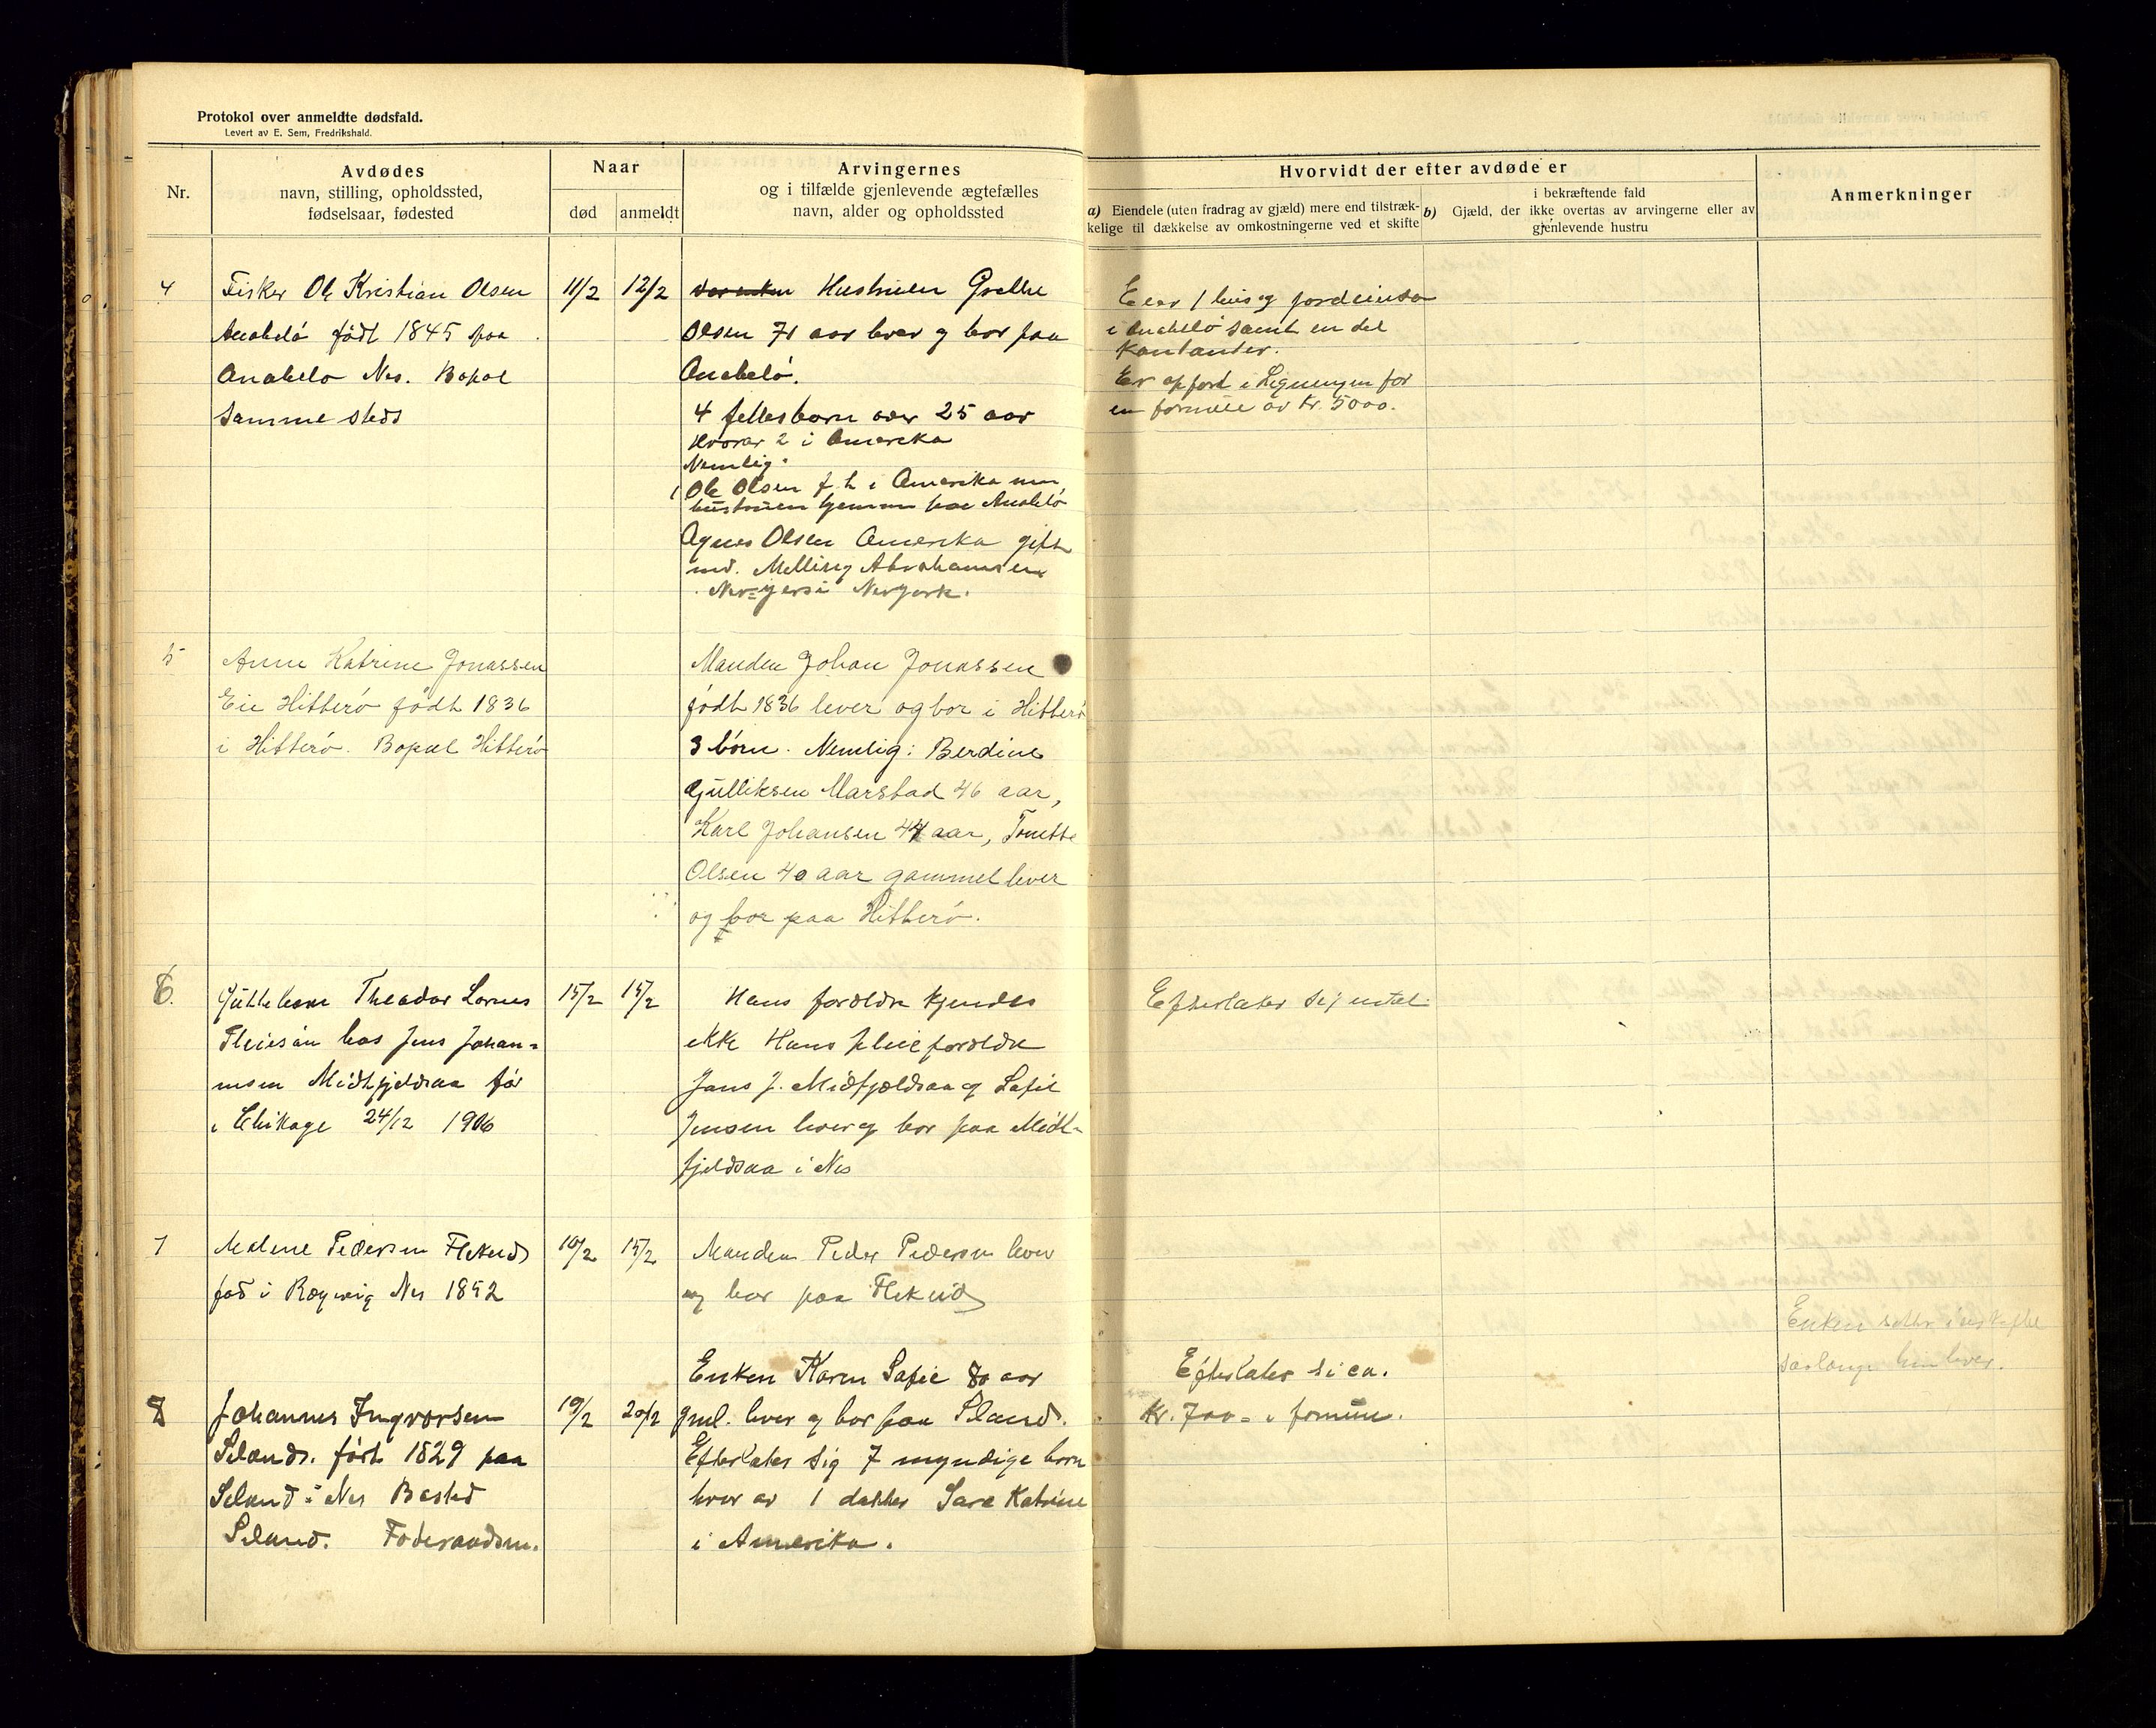 Protokol over anmeldte dødsfald.
Levert av E. Sem, Fredrikshald.
Nr.
Avdødes
navn, stilling, opholdssted,
fødselsaar, fødested
Naar
død
anmeldt
Arvingernes
og i tilfælde gjenlevende ægtefælles
navn, alder og opholdssted
Hvorvidt der efter avdøde er
a) Eiendele (uten fradrag av gjæld) mere end tilstræk-
kelige til dækkelse av omkostningerne ved et skifte
i bekræftende fald
b) Gjæld, der ikke overtas av arvingerne eller av
gjenlevende hustru
Anmerkninger
4
Fisker Ole Kristian Olsen
Anabelø født 1845 paa
Anabelø Nes. Bopæl
samme steds
11/2
12/2
Hustruen Grethe
Olsen 71 aar lever og bor paa
Anabelø.
4 fellesbørn over 25 aar
Hvorav 2 i Amerika
Nemlig:
Ole Olsen f. t. i Amerika men
hustruen hjemme paa Anabelø
Agnes Olsen Amerika gift
md. Melling Abrahamsen
Nevyork.
Eier 1 hus og jordeiendom
i Anabelø samt en del
kontanter.
Er opført i Ligningen for
en formue av kr. 5000.
5
Anne Katrine Jonassen
Eie Hitterø født 1836
i Hitterø. Bopæl Hitterø
Manden Johan Jonassen
født 1836 lever og bor i Hitterø
3 børn. Nemlig: Berdine
Gulliksen Marstad 46 aar,
Karl Johansen 44 aar, Tonette
Olsen 40 aar gammel lever
og bor paa Hitterø.
6.
Theodor
Pleiesøn hos Jens Johan-
nesen Midtfjeldsaa født
i Chikago 24/12 1906
15/2
15/2
Hans forældre kjendes
ikke Hans pleieforældre
Jens J. Midtfjeldsaa og Sofie
Jensen lever og bor paa Midt-
fjeldsaa i Nes
Efterlater sig intet.
7
Malene Pedersen Flekeid
fød i Nes 1852
10/2
15/2
Manden Peder Pedersen lever
og bor paa Flekeid
8
Johannes Ingvorsen
Seland. født 1829 paa
Seland i Nes Bosted
Seland. Føderaadsm.
19/2
20/2
Enken Karen Sofie 80 aar
gml. lever og bor paa Seland.
Efterlater sig 7 myndige børn
hvor av 1 datter Sara Katrine
i Amerika.
Efterlater si ca.
Kr. 700 = i formue.
Enken sitter i uskiftet
saalænge hun lever.